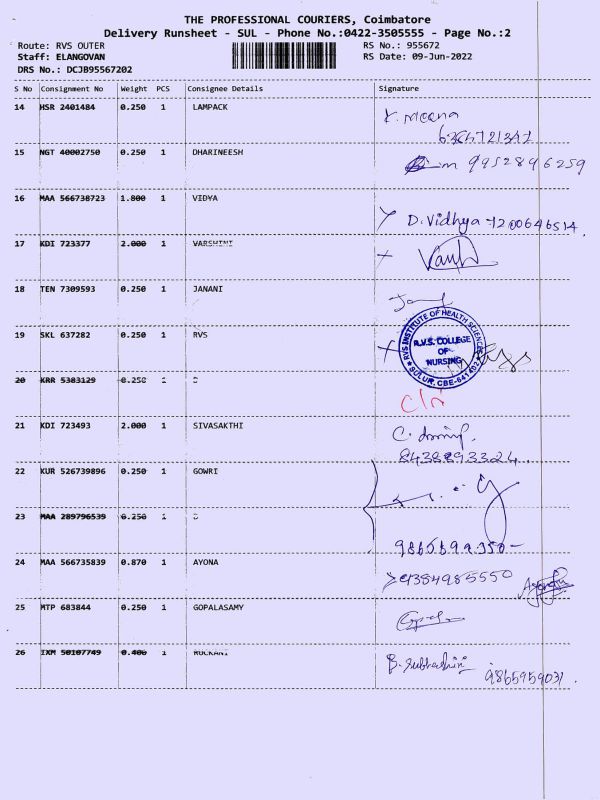 THE PROFESSIONAL COURIERS, Coimbatore
Delivery Runsheet - SUL - Phone No.:0422-3505555 - Page No.:2
Route: RVS OUTER
RS No.: 955672
Staff: ELANGOVAN
RS Date: 09-Jun-2022
DRS No.: DCJB95567202
S No Consignment No Weight PCS Consignee Details Signature
14 HSR 2401484 0.250 1 LAMPACK
15 NGT 40002750 0.250 1 DHARINEESH
9952896259
16 MAA 566738723 1.800 1 VIDYA
D. Vidhya 7200646514
17 KDI 723377 2.000 1 VARSHINI
18 TEN 7309593 0.250 1 JANANI
19 SKL 637282 0.250 1 RVS
RVS INSTITUTE OF HEALTH SCIENCES
R.V.S. COLLEGE
OF
NURSING
SULUR, CBE-641402
20 KRR 5383129 0.250 1
21 KDI 723493 2.000 1 SIVASAKTHI
8438893324
22 KUR 526739896 0.250 1 GOWRI
23 MAA 289796539 0.250 1
24 MAA 566735839 0.870 1 AYONA
9384985550
25 MTP 683844 0.250 1 GOPALASAMY
26 IXM 50107749 0.400 1 RUCKANI
9865959031